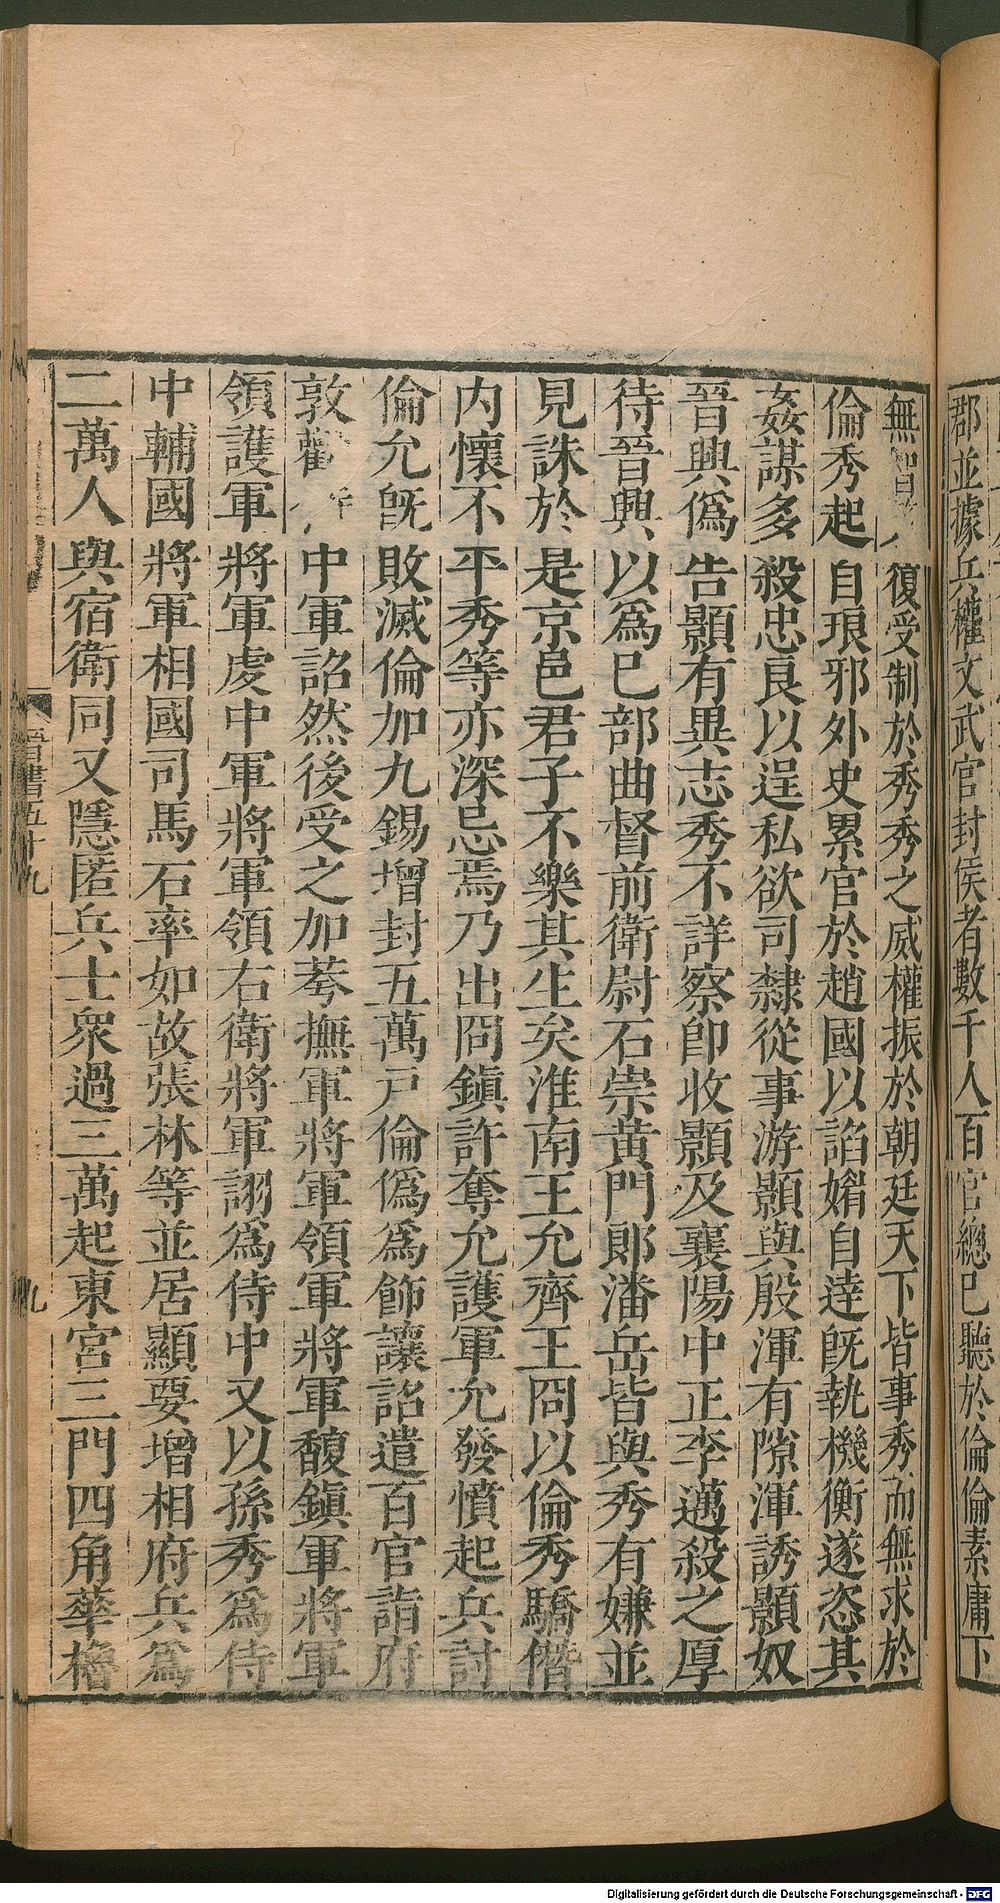 郡並據兵權文武官封侯者數千人百官總已聽於倫倫素庸下
無智復受制於秀秀之威權振於朝廷天下皆事秀而無求於
倫秀起自琅邪外史累官於趙國以諂媚自達旣執機衡遂恣其
姦謀多殺忠良以逞私欲司隸從事游顥與殷渾有隙渾誘顥奴
晉興僞告顥有異志秀不詳察卽收顥及襄陽中正李邁殺之厚
待晉興以爲已部曲督前衛尉石崇黃門郞潘岳皆與秀有嫌並
見誅於是京邑君子不樂其生矣淮南王允齊王冏以倫秀驕僭
内懷不平秀等亦深忌焉乃出冏鎭許奪允護軍允發憤起兵討
倫允旣敗滅倫加九錫增封五萬戸倫僞爲飾讓詔遣百官詣府
敦勸中軍詔然後受之加荂撫軍將軍領軍將軍馥鎭軍將軍
領護軍將軍虔中軍將軍領右衛將軍詡爲侍中又以孫秀爲侍
中輔國將軍相國司馬右率如故張林等並居顯要增相府兵爲
二萬人與宿衛同又隱匿兵士衆過三萬起東宮三門四角華櫓
晉書五十九
九
Digitalisierung gefördert durch die Deutsche Forschungsgemeinschaft - DFG